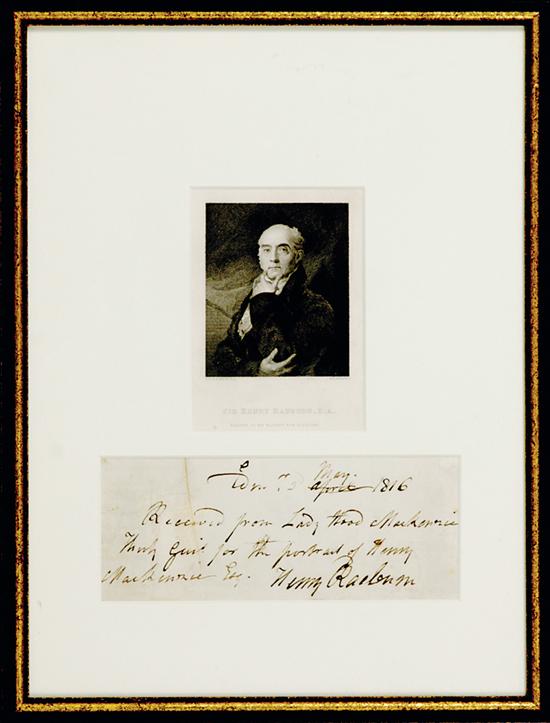 SIR HENRY RAEBURN, R.A.
May
Edin 3 april 1816
Received from Lady Hood Mackenzie
Thirty Guis for the portrait of Henry
Mackenzie Esq. Henry Raeburn